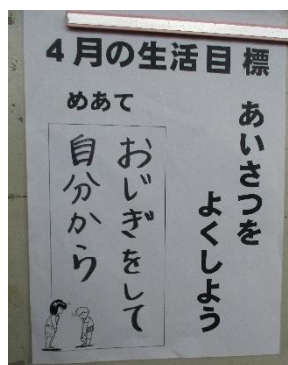 4月の生活目標
あいさつを
よくしよう
めあて
おじぎをして
自分から